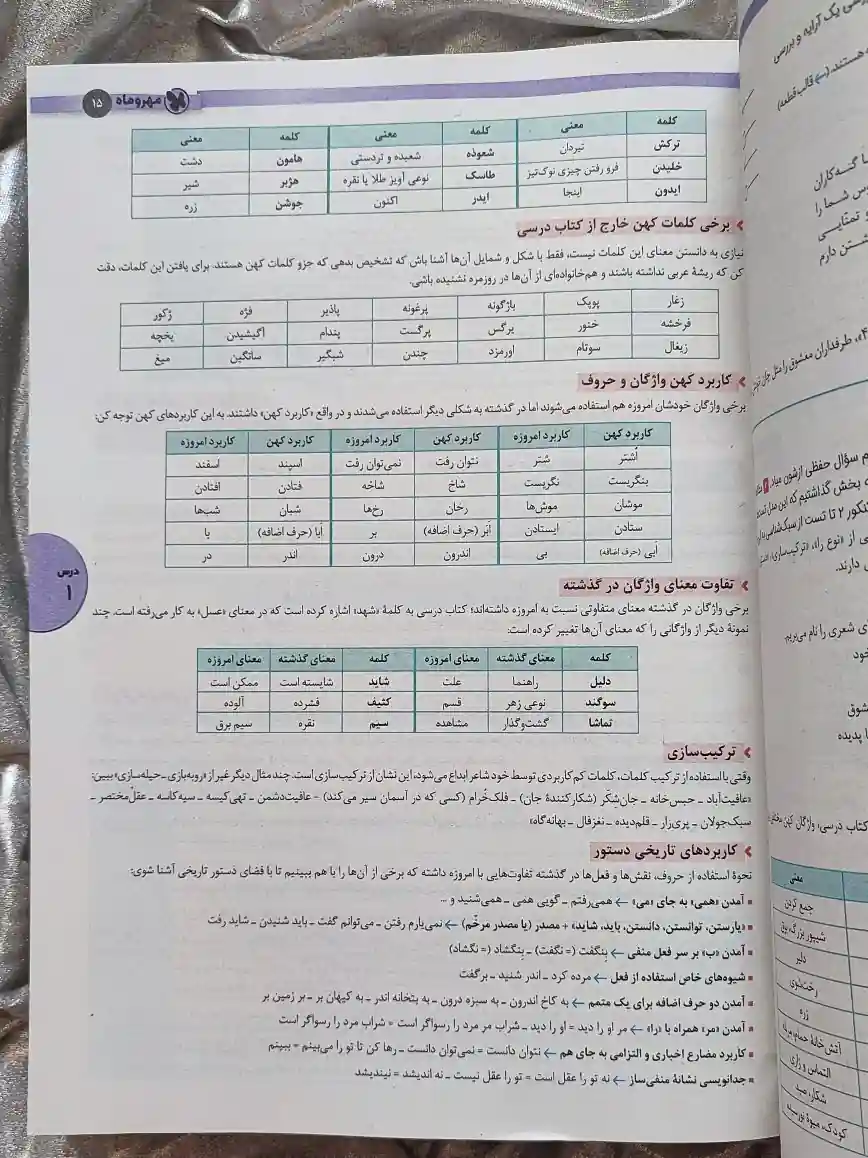 مهروماه ۱۵
کلمه معنی کلمه معنی کلمه معنی
ترکش تیردان شعوذه شعبده و تردستی هامون دشت
خلیدن فرو رفتن چیزی نوک‌تیز طاسک نوعی آویز طلا یا نقره هژبر شیر
ایدون اینجا ایدر اکنون جوشن زره
برخی کلمات کهن خارج از کتاب درسی
نیازی به دانستن معنای این کلمات نیست، فقط با شکل و شمایل آن‌ها آشنا باش که تشخیص بدهی که جزو کلمات کهن هستند. برای یافتن این کلمات، دقت
کن که ریشهٔ عربی نداشته باشند و هم‌خانواده‌ای از آن‌ها در روزمره نشنیده باشی.
زغار پوپک باژگونه پرغونه پاذیر فژه ژکور
فرخشه خنور برگس پرگست پندام آگیشیدن یخچه
زیغال سوتام اورمزد چندن شبگیر ساتگین میغ
کاربرد کهن واژگان و حروف
برخی واژگان خودشان امروزه هم استفاده می‌شوند اما در گذشته به شکلی دیگر استفاده می‌شدند و در واقع «کاربرد کهن» داشتند. به این کاربردهای کهن توجه کن:
کاربرد کهن کاربرد امروزه کاربرد کهن کاربرد امروزه کاربرد کهن کاربرد امروزه
اُشتر شتر نتوان رفت نمی‌توان رفت اسپند اسفند
بنگریست نگریست شاخ شاخه فتادن افتادن
موشان موش‌ها رخان رخ‌ها شبان شب‌ها
ستادن ایستادن اَبَر (حرف اضافه) بر اَبا (حرف اضافه) با
اَبی (حرف اضافه) بی اندرون درون اندر در
درس
۱
تفاوت معنای واژگان در گذشته
برخی واژگان در گذشته معنای متفاوتی نسبت به امروزه داشته‌اند؛ کتاب درسی به کلمهٔ «شهد» اشاره کرده است که در معنای «عسل» به کار می‌رفته است. چند
نمونهٔ دیگر از واژگانی را که معنای آن‌ها تغییر کرده است:
کلمه معنای گذشته معنای امروزه کلمه معنای گذشته معنای امروزه
دلیل راهنما علت شاید شایسته است ممکن است
سوگند نوعی زهر قسم کثیف فشرده آلوده
تماشا گشت‌وگذار مشاهده سیم نقره سیم برق
ترکیب‌سازی
وقتی با استفاده از ترکیب کلمات، کلمات کم‌کاربردی توسط خود شاعر ابداع می‌شود، این نشان از ترکیب‌سازی است. چند مثال دیگر غیر از «روبه‌بازی ـ حیله‌سازی» ببین:
«عافیت‌آباد ـ حبس‌خانه ـ جان‌شِکَر (شکارکنندهٔ جان) ـ فلک‌خُرام (کسی که در آسمان سیر می‌کند) ـ عافیت‌دشمن ـ تهی‌کیسه ـ سیه‌کاسه ـ عقل‌مختصر ـ
سبک‌جولان ـ پری‌زار ـ قلم‌دیده ـ نغزفال ـ بهانه‌گاه»
کاربردهای تاریخی دستور
نحوهٔ استفاده از حروف، نقش‌ها و فعل‌ها در گذشته تفاوت‌هایی با امروزه داشته که برخی از آن‌ها را با هم ببینیم تا با فضای دستور تاریخی آشنا شوی:
▪ آمدن «همی» به جای «می» ← همی‌رفتم ـ گویی همی ـ همی‌شنید و ...
▪ «یارستن، توانستن، دانستن، باید، شاید» + مصدر (یا مصدر مرخّم) ← نمی‌یارم رفتن ـ می‌توانم گفت ـ باید شنیدن ـ شاید رفت
▪ آمدن «ب» بر سر فعل منفی ← بِنگفت (= نگفت) ـ بنگشاد (= نگشاد)
▪ شیوه‌های خاص استفاده از فعل ← مرده کرد ـ اندر شنید ـ برگفت
▪ آمدن دو حرف اضافه برای یک متمم ← به کاخ اندرون ـ به سبزه درون ـ به بتخانه اندر ـ به کیهان بر ـ بر زمین بر
▪ آمدن «مر» همراه با «را» ← مر او را دید = او را دید ـ شراب مر مرد را رسواگر است = شراب مرد را رسواگر است
▪ کاربرد مضارع اخباری و التزامی به جای هم ← نتوان دانست = نمی‌توان دانست ـ رها کن تا تو را می‌بینم = ببینم
▪ جدانویسی نشانهٔ منفی‌ساز ← نه تو را عقل است = تو را عقل نیست ـ نه اندیشد = نیندیشد
یک آرایه و بررسی
هستند. (← قالب قطعه)
گنه‌کاران
شما را
تمنایی
دارم
طرفداران معشوق را مثل جان
سؤال حفظی ازشون میاد.
بخش گذاشتیم که این مدل
۲ تا تست از سبک‌شناسی
از «نوع را»، «ترکیب‌سازی»
دارند.
شعری را نام می‌بریم
خود
شوق
پدیده
کتاب درسی، واژگان کهن
معنی
جمع کردن
شیپور بزرگ، بوق
دلیر
رخت‌شوی
زره
التماس و زاری
شکار، صید
کودک، میوهٔ نورسیده